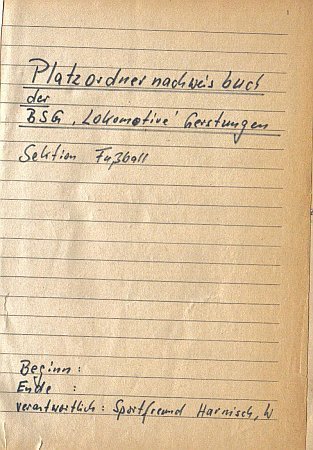 Platzordnernachweisbuch
der
BSG ‚Lokomotive‘ Gerstungen
Sektion Fußball
Beginn :
Ende :
verantwortlich : Sportfreund Harnisch, W